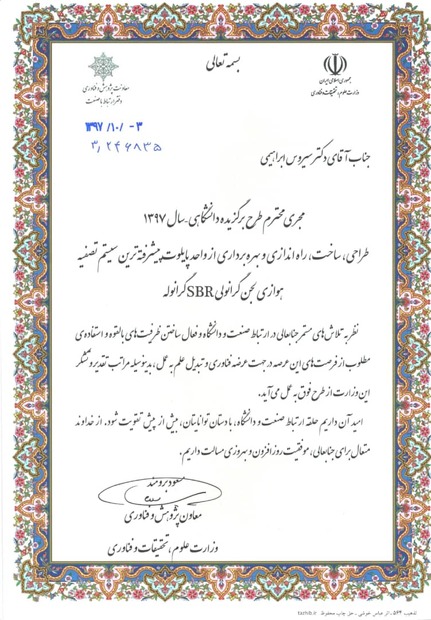 بسمه تعالی
جمهوری اسلامی ایران
وزارت علوم، تحقیقات و فناوری
معاونت پژوهش و فناوری
دفتر ارتباط با صنعت
۱۳۹۷/۱۰/۰۳
۳/۲۴۶۸۳۵
جناب آقای دکتر سیروس ابراهیمی
مجری محترم طرح برگزیده دانشگاهی - سال ۱۳۹۷
طراحی، ساخت، راه اندازی و بهره برداری از واحد پایلوت پیشرفته ترین سیستم تصفیه
هوازی لجن گرانولی SBR گرانوله
نظر به تلاش های مستمر جنابعالی در ارتباط صنعت و دانشگاه و فعال ساختن ظرفیت های بالقوه و استفاده ی
مطلوب از فرصت های این عرصه در جهت عرضه فناوری و تبدیل علم به عمل، بدینوسیله مراتب تقدیر و تشکر
این وزارت از طرح فوق به عمل می آید.
امید آن داریم حلقه ارتباط صنعت و دانشگاه، با دستان توانایتان، بیش از پیش تقویت شود. از خداوند
متعال برای جنابعالی، موفقیت روز افزون و بهروزی مسالت داریم.
مسعود برومند
معاون پژوهش و فناوری
وزارت علوم، تحقیقات و فناوری
تذهیب ۵۶۴، اثر عباس خوشی - حق چاپ محفوظ. tazhib.ir